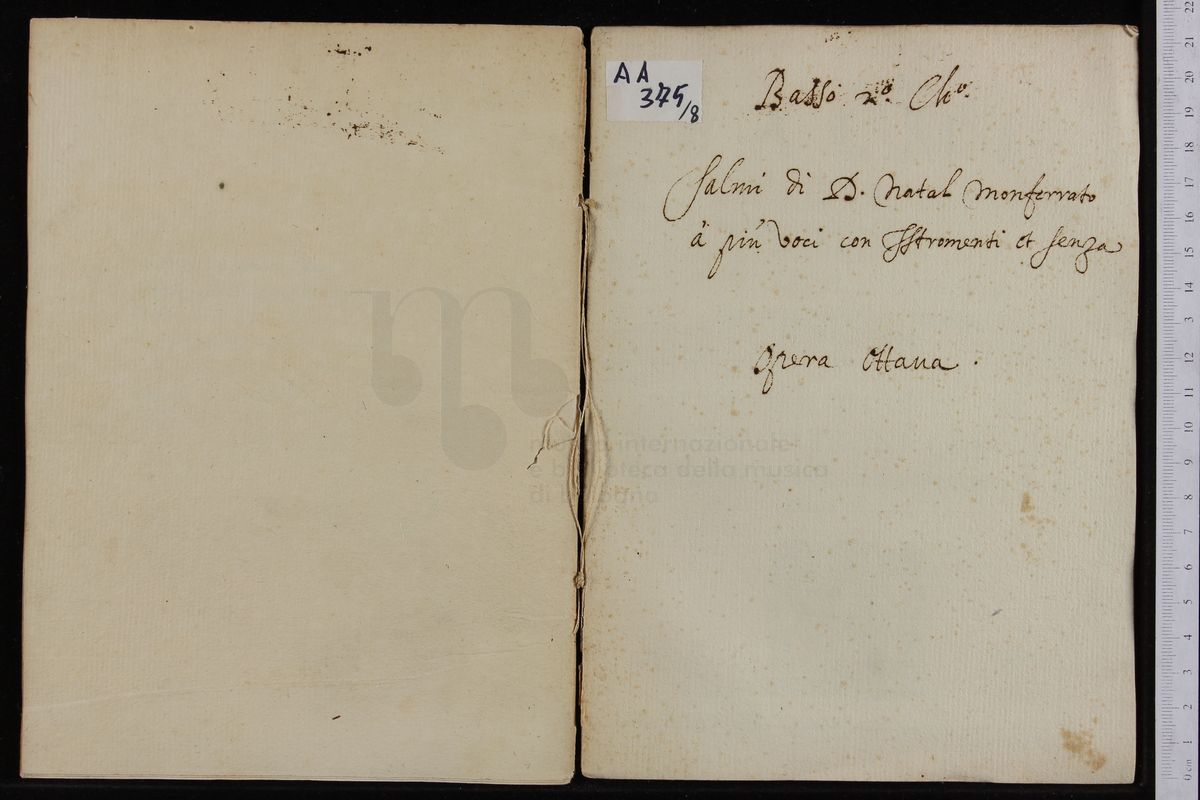 AA
375/8
Basso 2º. Chº.
Salmi di D. Natal Monferrato
à più Voci con Istromenti et senza
Opera Ottaua.
museo internazionale
e biblioteca della musica
di bologna
22
21
20
19
18
17
16
15
14
3
12
11
10
9
8
7
6
5
4
3
2
1
0 cm